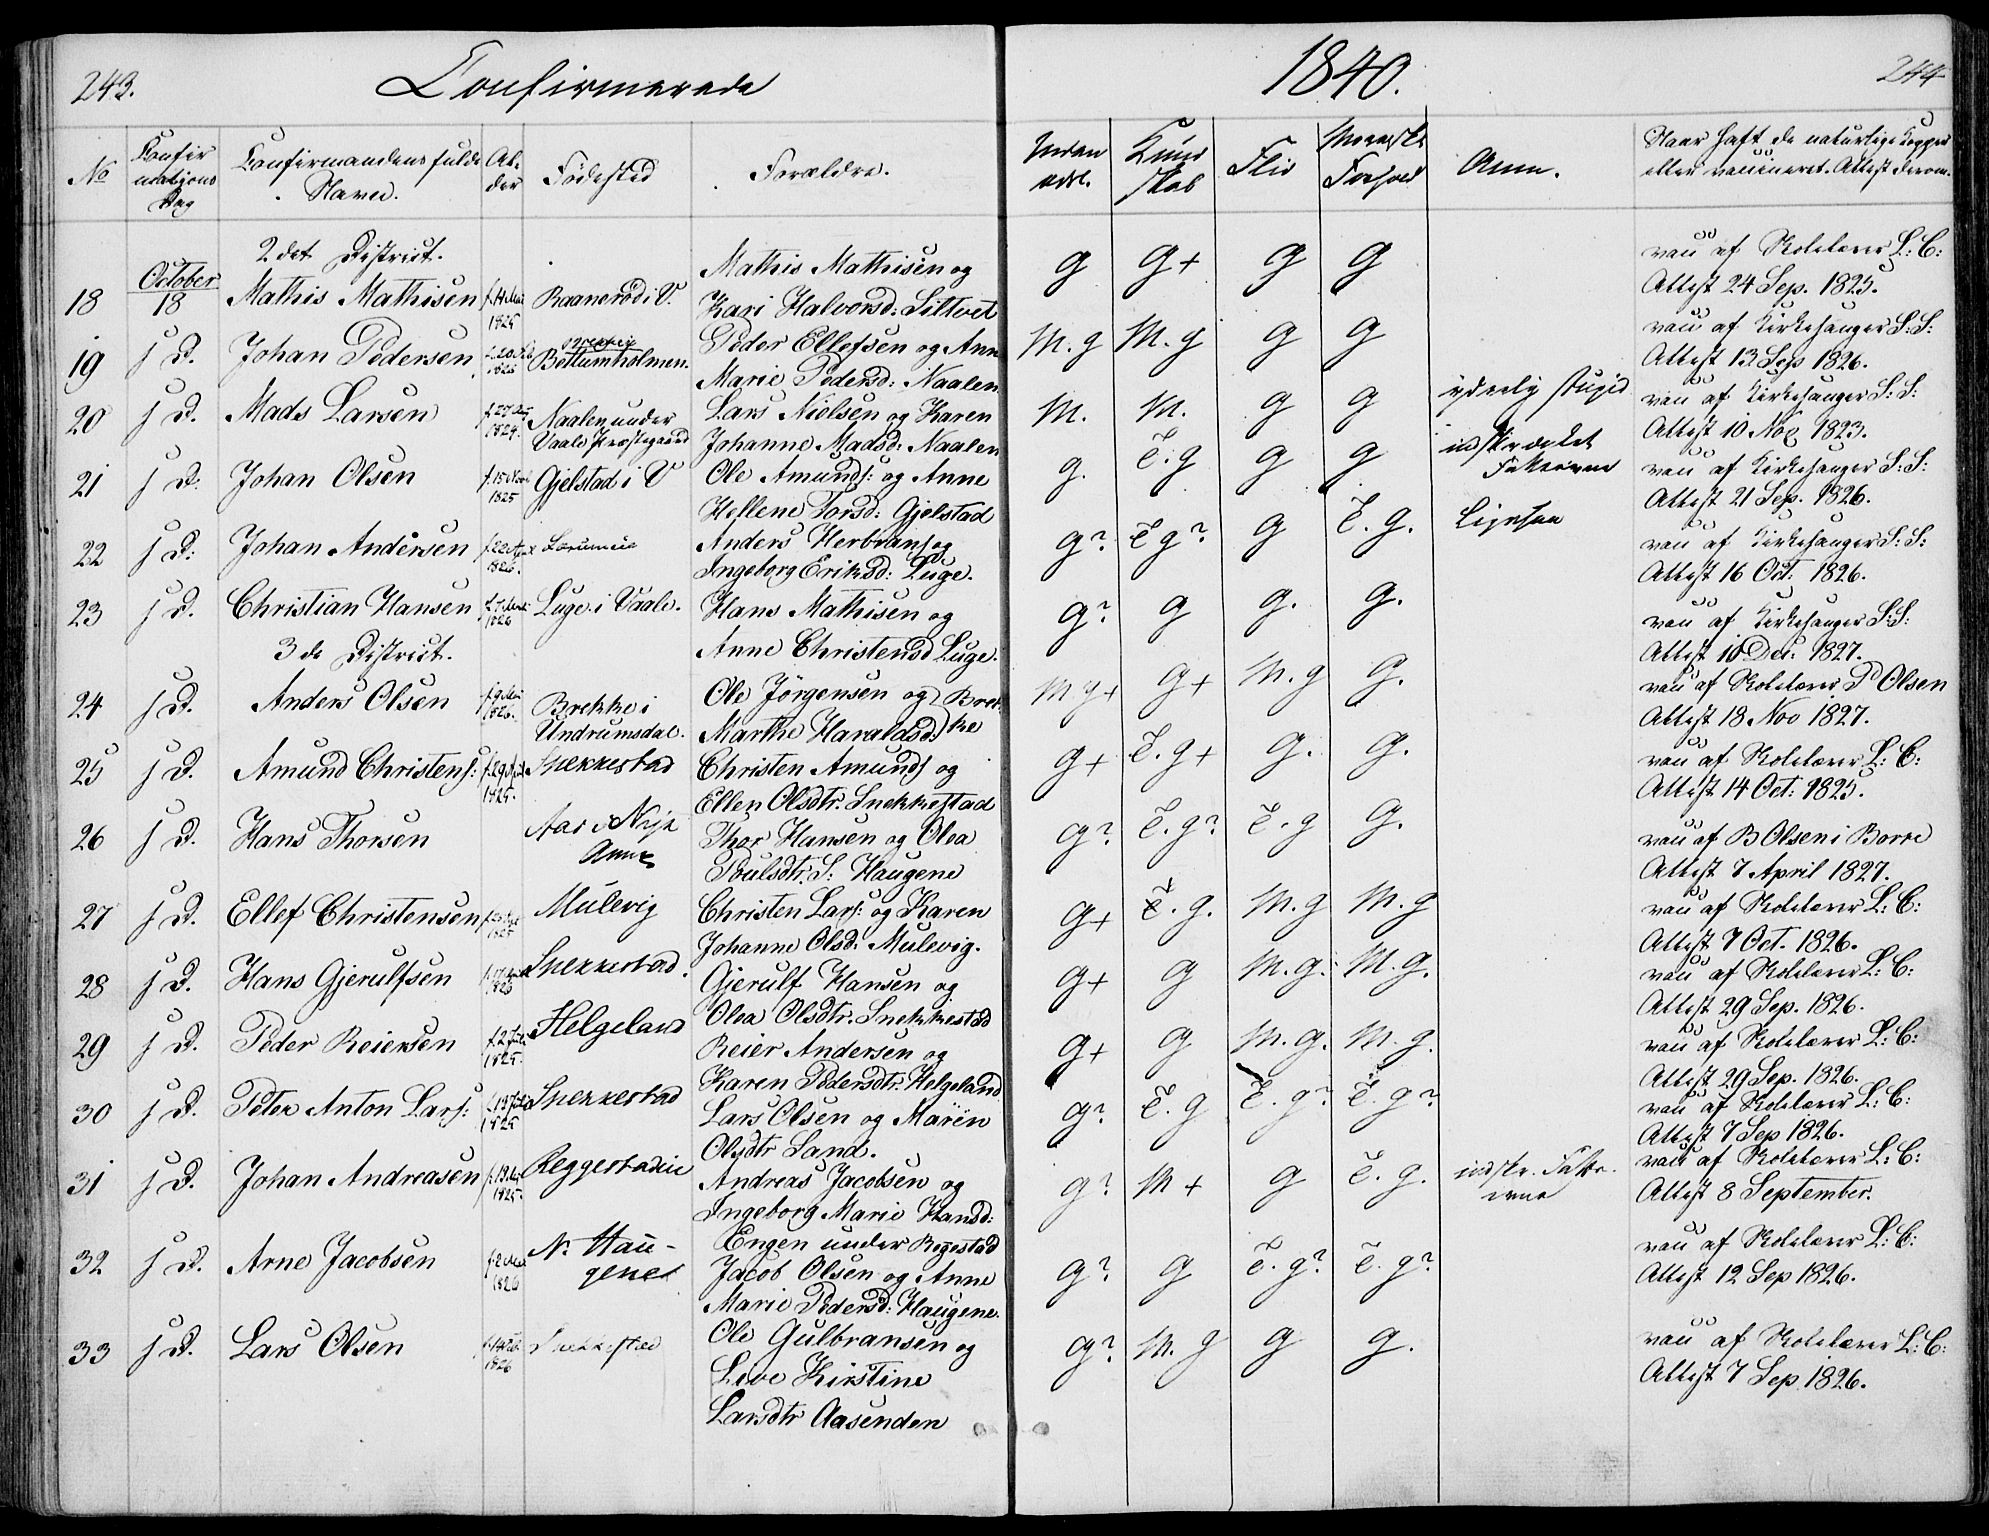 243.
Confirmerede
1840.
244
No
Confirmations Dag
Confirmandens fulde Navn.
Alder
Fødested
Forældre.
Kundskab
Flid
Moralsk Forhold
Anm.
Naar haft de naturlige Kopper eller vaccineret. Attest derom.
2det District.
18 October 18 Mathis Mathisen f. 14 Mai 1825 Raanerød i V. Mathis Mathisen og Kari Halvorsd: Siltvet g g+ g g vacc af Skolelærer L: C: Attest 24 Sep. 1825.
19 s D. Johan Pedersen 1826 Bettumholmen. Peder Ellefsen og Anne Marie Pedersd: Naalen M. g M. g g g vacc af Kirkesanger S: S: Attest 13 Sep 1826.
20 s D. Mads Larsen 1824. Naalen under Vaale Præstegaard Lars Nielsen og Karen Johanne Madsd: Naalen M. M. g g yderlig stupid vacc af Kirkesanger S: S: Attest 10 Nov 1823.
21 s D: Johan Olsen f. 15 1825 Gjelstad i V Ole Amunds: og Anne Hellene Torsd: Gjelstad g. T. g g g indskrænket vacc af Kirkesanger S: S: Attest 21 Sep. 1826.
22 s D: Johan Andersen f. 22 1826. Anders Herbrans og Ingeborg Eriksd: Luge. g? T g? g T. g. Ligesaa vacc af Kirkesanger S: S: Attest 16 Oct: 1826.
23 s D. Christian Hansen 1826 Luge i Vaale. Hans Mathisen og Anne Christensd Luge. g? g g. g. vacc af Kirkesanger S: S: Attest 10 Dec: 1827.
3de District.
24 s D. Anders Olsen f. 9 Mai 1826. Brekke i Undrumsdal. Ole Jörgensen og Marthe Haraldsd: Brekke M g+ g+ M. g g. vacc af Skolelærer P Olsen Attest 18 Nov 1827.
25 s D. Amund Christens: f. 29 1825. Snekkestad Christen Amunds og Ellen Olsdtr. Snekkestad g+ T. g+ g. g. vacc af Skolelærer L: C: Attest 14 Oct: 1825.
26 s D. Hans Thorsen Thor Hansen og Olea Poulsdtr. S: Haugene g? T. g? T. g g. vacc af B Olsen i Borre Attest 7 April 1827.
27 s D. Ellef Christensen 1825 Mulevig Christen Lars: og Karen Johanne Olsd: Mulevig. g+ T. g. M. g M. g vacc af Skolelærer L: C: Attest 7 Oct. 1826.
28 s D. Hans Gjerulfsen 1826 Snekkestad. Gjerulf Hansen og Olea Olsdtr. Snekkestad g+ g M. g. M. g. vacc af Skolelærer L: C: Attest 29 Sep. 1826.
29 s D. Peder Reiersen f. 2 1825. Helgeland Reier Andersen og Karen Pedersdtr: Helgeland g+ g M. g. M. g. vacc af Skolelærer L: C: Attest 29 Sep. 1826.
30 s D. Peter Anton Lars: f. 13 1825 Snekkestad Lars Olsen og Maren Olsdtr Sand. g? T. g T. g? T. g? vacc af Skolelærer L: C: Attest 7 Sep 1826.
31 s D. Johan Andreasen 1825. Reggestadeie Andreas Jacobsen og Ingeborg Marie Hansd: Engen under Reggestad g? M + g T. g. indskr. vacc af Skolelærer L: C: Attest 8 September.
32 s D. Arne Jacobsen f. 2 1826 N. Haugene Jacob Olsen og Anne Marie Pedersd: Haugene. g? g T. g? T. g? vacc af Skolelærer L: C: Attest 12 Sep 1826.
33 s D. Lars Olsen 1826 Snekkestad Ole Gulbransen og Live Kirstine Larsdtr Aasenden g? M. g g g. vacc af Skolelærer L: C: Attest 7 Sep 1826.